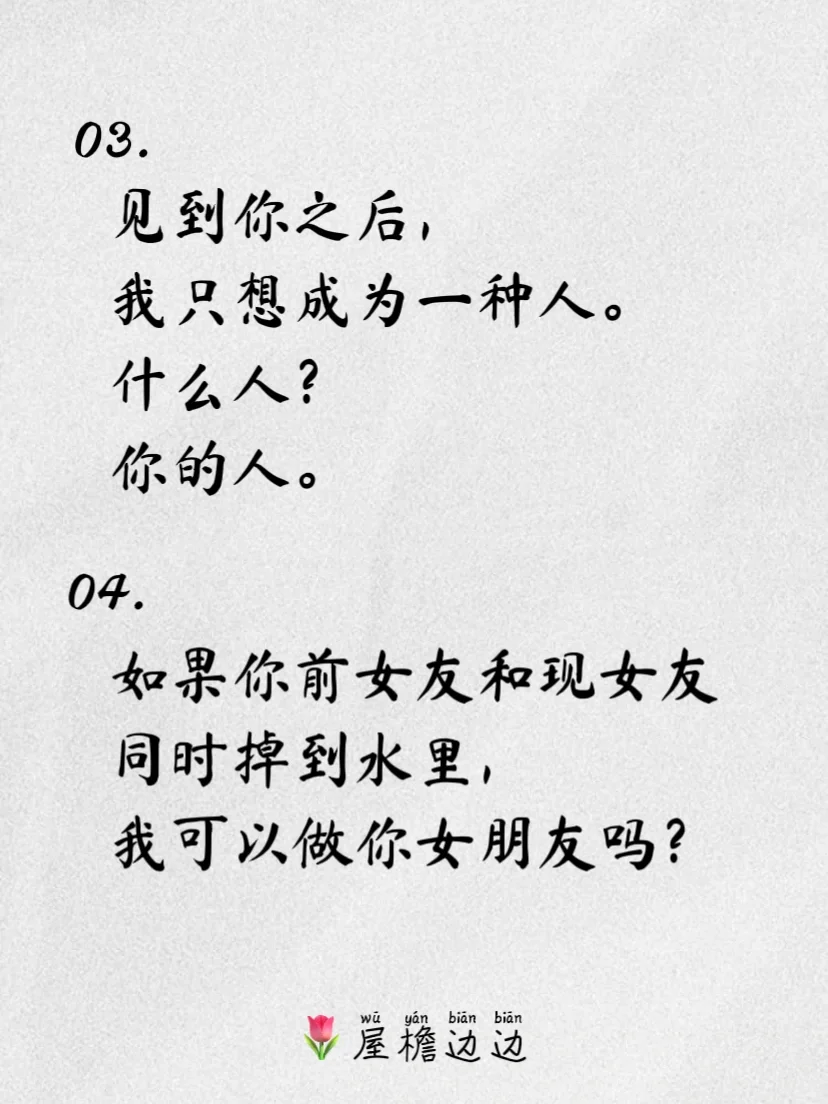 03.
见到你之后，
我只想成为一种人。
什么人？
你的人。
04.
如果你前女友和现女友
同时掉到水里，
我可以做你女朋友吗？
wū yán biān biān
屋檐边边